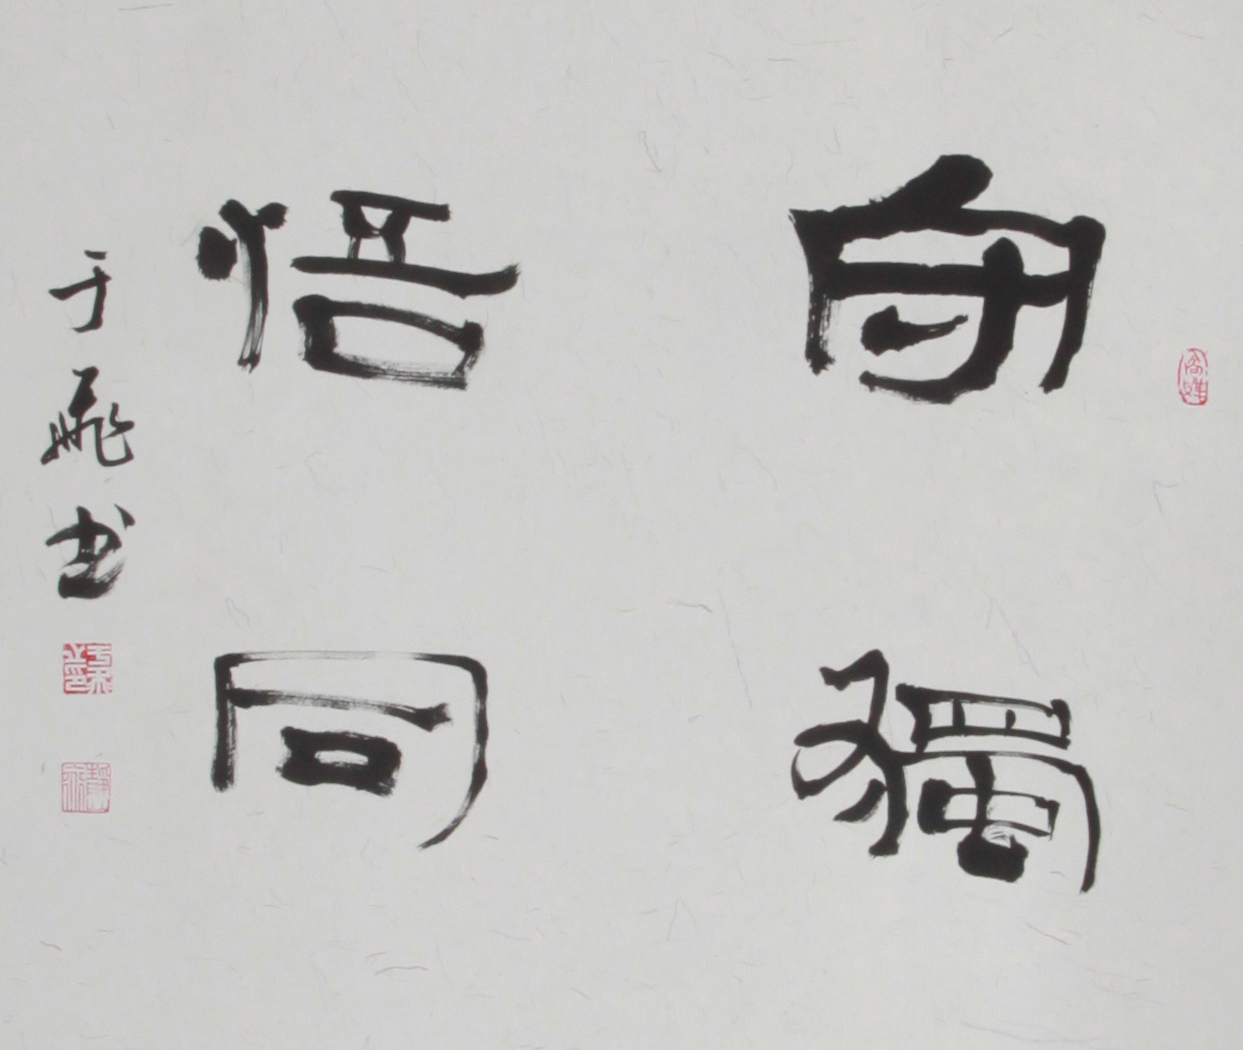 守獨
悟同
于飛书